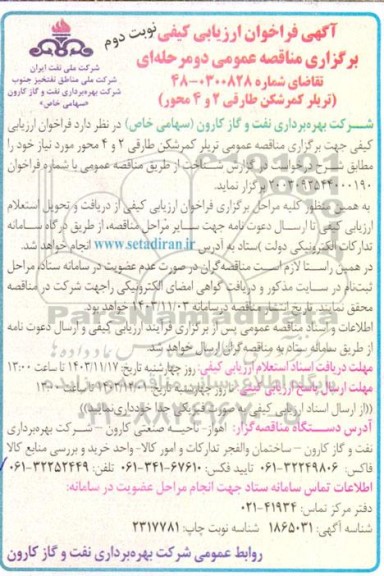 آگهی فراخوان ارزیابی کیفی
نوبت دوم
برگزاری مناقصه عمومی دومرحله‌ای
تقاضای شماره ۰۳۰۰۸۲۸-۴۸
(تریلر کمرشکن طارقی ۲ و ۴ محور)
شرکت ملی نفت ایران
شرکت ملی مناطق نفتخیز جنوب
شرکت بهره‌برداری نفت و گاز کارون
«سهامی خاص»
شرکت بهره‌برداری نفت و گاز کارون (سهامی خاص) در نظر دارد فراخوان ارزیابی
کیفی جهت برگزاری مناقصه عمومی تریلر کمرشکن طارقی ۲ و ۴ محور مورد نیاز خود را
مطابق شرح درخواست در گزارش شناخت از طریق مناقصه عمومی با شماره فراخوان
۲۰۰۳۰۹۳۵۴۴۰۰۰۱۹۰ برگزار نماید.
به همین منظور کلیه مراحل برگزاری فراخوان ارزیابی کیفی از دریافت و تحویل استعلام
ارزیابی کیفی تا ارسال دعوت نامه جهت سایر مراحل مناقصه، از طریق درگاه سامانه
تدارکات الکترونیکی دولت (ستاد به آدرس www.setadiran.ir انجام خواهد شد.
در همین راستا لازم است مناقصه‌گران در صورت عدم عضویت در سامانه ستاد، مراحل
ثبت‌نام در سایت مذکور و دریافت گواهی امضای الکترونیکی را جهت شرکت در مناقصه
محقق نمایند. تاریخ انتشار مناقصه در سامانه ۱۴۰۳/۱۱/۰۳ خواهد بود.
اطلاعات و اسناد مناقصه عمومی پس از برگزاری فرآیند ارزیابی کیفی و ارسال دعوت نامه
از طریق سامانه ستاد به مناقصه گران ارسال خواهد شد.
مهلت دریافت اسناد استعلام ارزیابی کیفی: روز چهارشنبه تاریخ ۱۴۰۳/۱۱/۱۷ تا ساعت ۱۳:۰۰
مهلت ارسال پاسخ ارزیابی کیفی: روز چهارشنبه تاریخ تا ساعت ۱۳:۰۰
((از ارسال اسناد ارزیابی کیفی به صورت فیزیکی جدا خودداری نمایید))
آدرس دستگاه مناقصه‌گزار: اهواز- ناحیه صنعتی کارون - شرکت بهره‌برداری
نفت و گاز کارون - ساختمان والفجر تدارکات و امور کالا- واحد خرید و بررسی منابع کالا
فاکس: ۳۲۲۴۹۸۰۶-۰۶۱ تایید فکس: ۶۷۷۶۱-۳۴۱-۰۶۱ تلفن: ۳۲۲۵۲۴۴۹-۰۶۱
اطلاعات تماس سامانه ستاد جهت انجام مراحل عضویت در سامانه:
دفتر مرکز تماس: ۴۱۹۳۴-۰۲۱
شناسه آگهی: ۱۸۶۵۰۳۱ شناسه نوبت چاپ: ۲۳۱۷۷۸۱
روابط عمومی شرکت بهره‌برداری نفت و گاز کارون